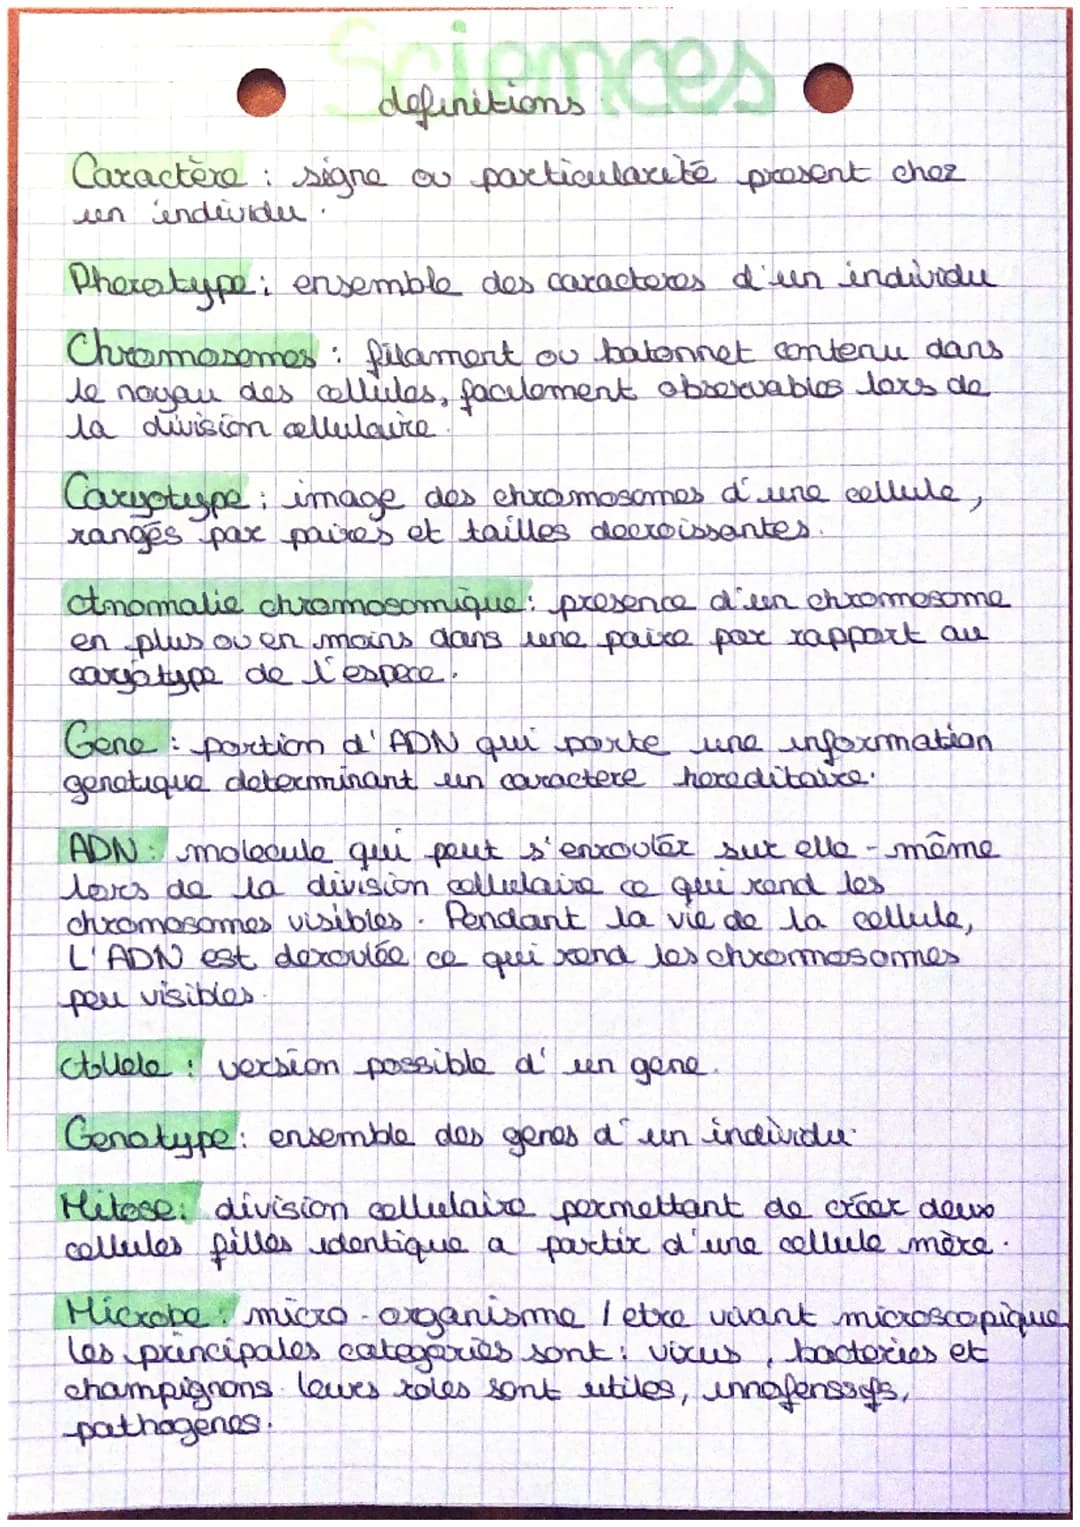 Sciences
definitions
Caractère : signe ou particularité present chez
un individu.
Phenotype : ensemble des caracteres d'un individu
Chromosomes : filament ou batonnet contenu dans
le noyau des cellules, facilement observables lors de
la division cellulaire.
Caryotype : image des chromosomes d'une cellule,
rangés par paires et tailles decroissantes.
Anomalie chromosomique : presence d'un chromosome
en plus ou en moins dans une paire par rapport au
caryotype de l'espece.
Gene : portion d'ADN qui porte une information
genetique determinant un caractere hereditaire.
ADN : molecule qui peut s'enrouler sur elle-même
lors de la division cellulaire ce qui rend les
chromosomes visibles. Pendant la vie de la cellule,
L'ADN est deroulée ce qui rend les chromosomes
peu visibles.
Allele : version possible d'un gene.
Genotype : ensemble des genes d'un individu.
Mitose : division cellulaire permettant de créer deux
cellules filles identique a partir d'une cellule mère.
Microbe : micro-organisme / etre vivant microscopique
les principales categories sont : virus, bacteries et
champignons. leurs roles sont utiles, innofenssifs,
pathogenes.